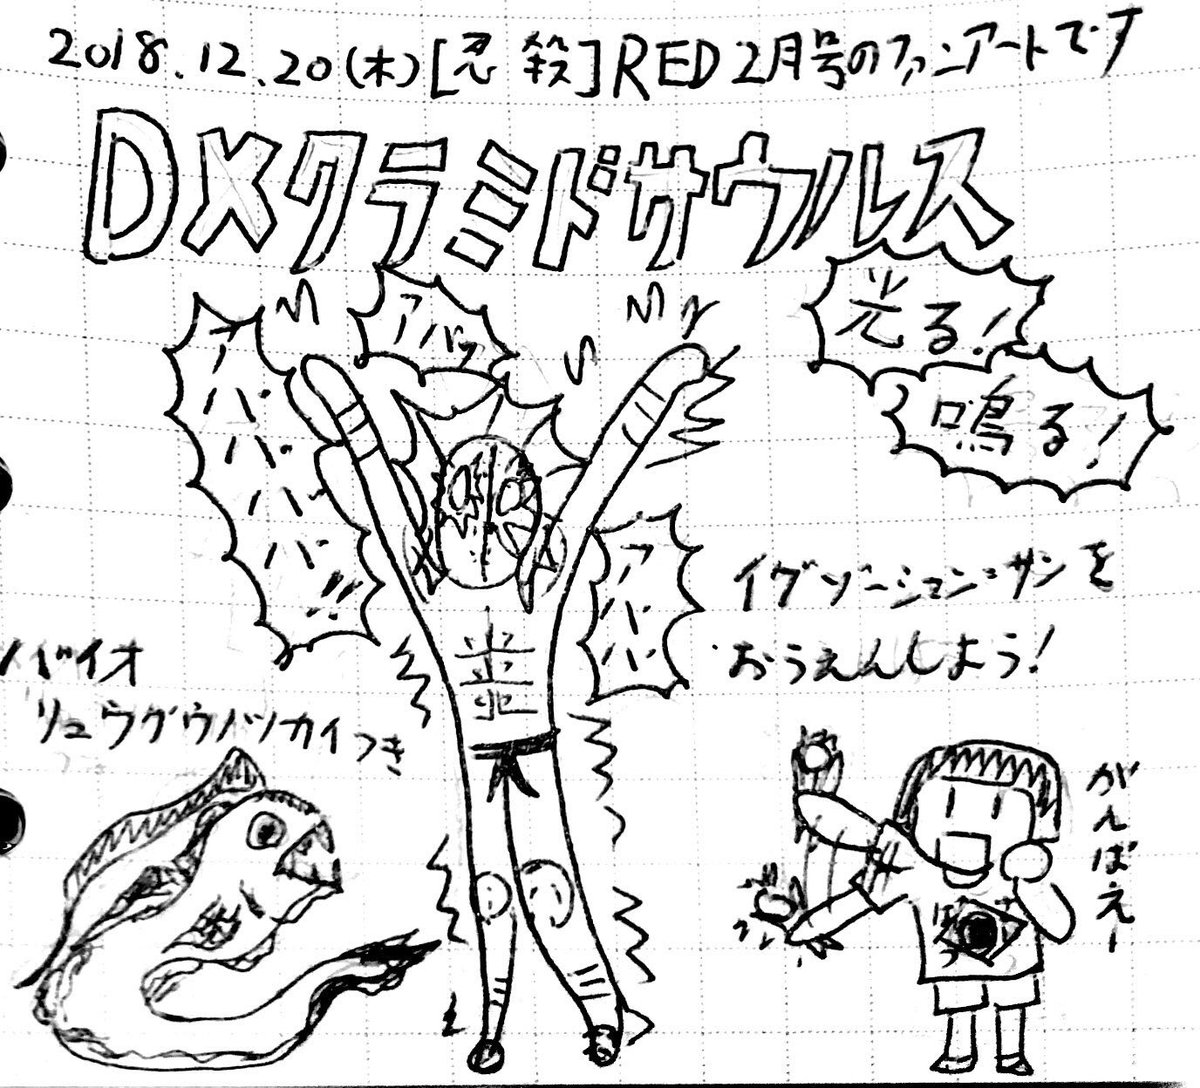 2018.12.20(木)[忍殺]RED2月号のファンアートです
DXクラミドサウルス
光る!
鳴る!
アバッ
アババババ!!
アババ
イグゾーション=サンを
おうえんしよう!
バイオ
リュウグウノツカイつき
がんばえー